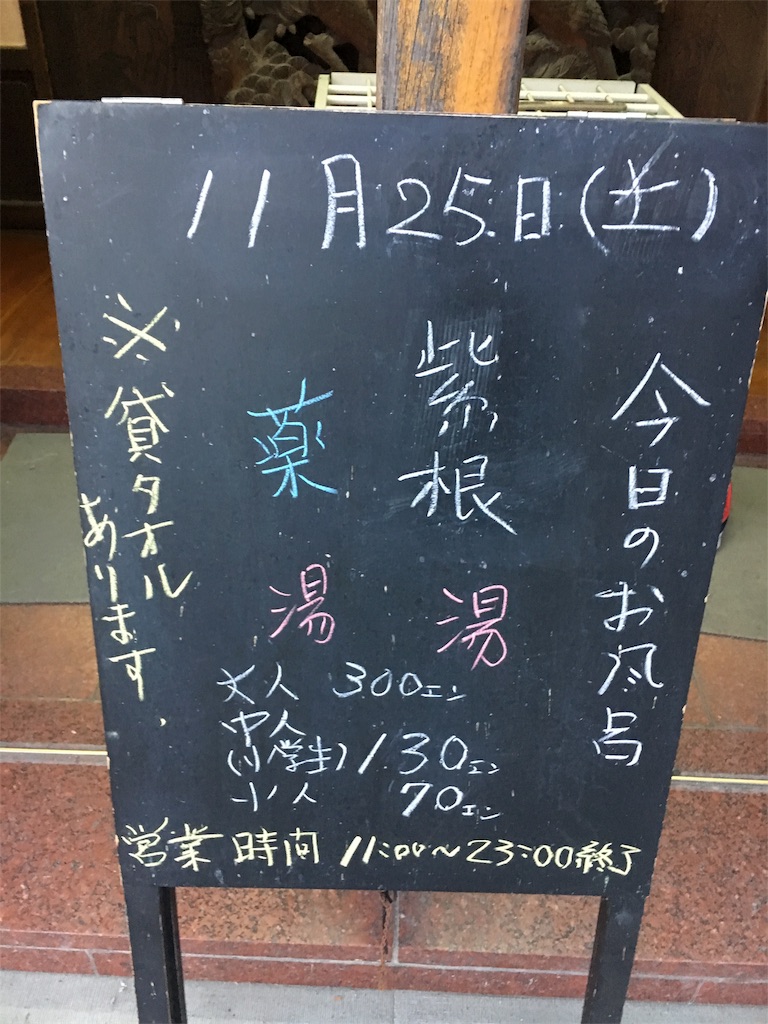 11月25日(土)
今日のお風呂
紫根湯
薬湯
※貸タオル
あります。
大人 300エン
中人
(小学生) 130エン
小人 70エン
営業時間 11:00〜23:00終了